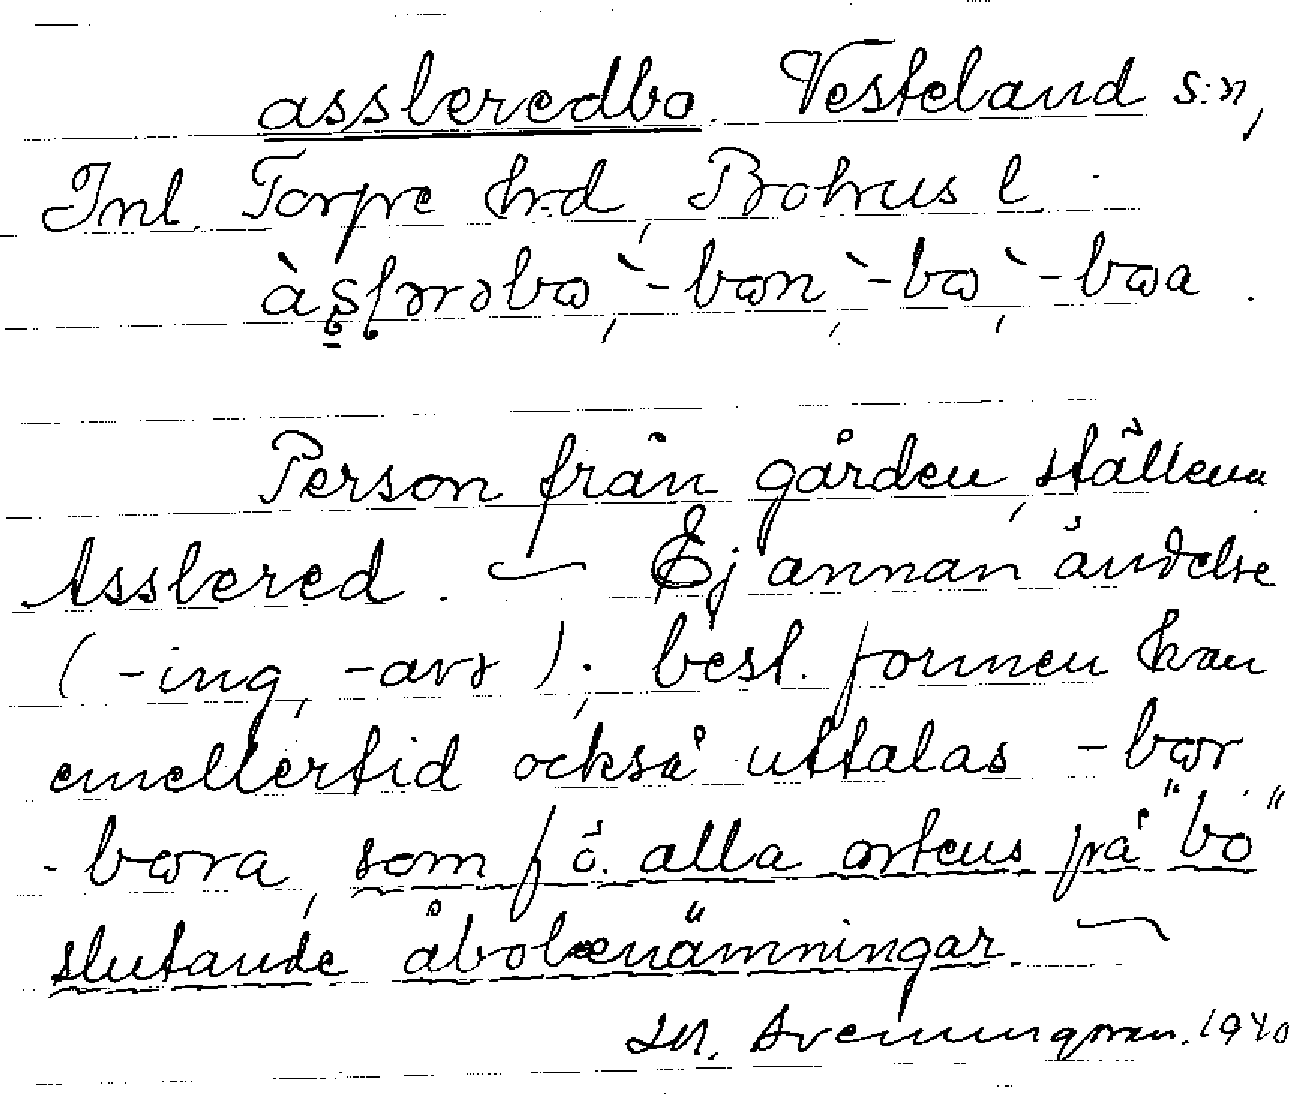 assleredbo. Vesteland s:n,
Inl. Torpe hrd, Bohus l.
-bωn, -bω, -bωa.
Person från gården, ställena
Asslered. — Ej annan ändelse
(-ing, -avr); best. formen kan
emellertid också uttalas -bωr
-bωra, som f ö. alla ortens på "bo"
slutande åbobenämningar. —
Areningman. 1940